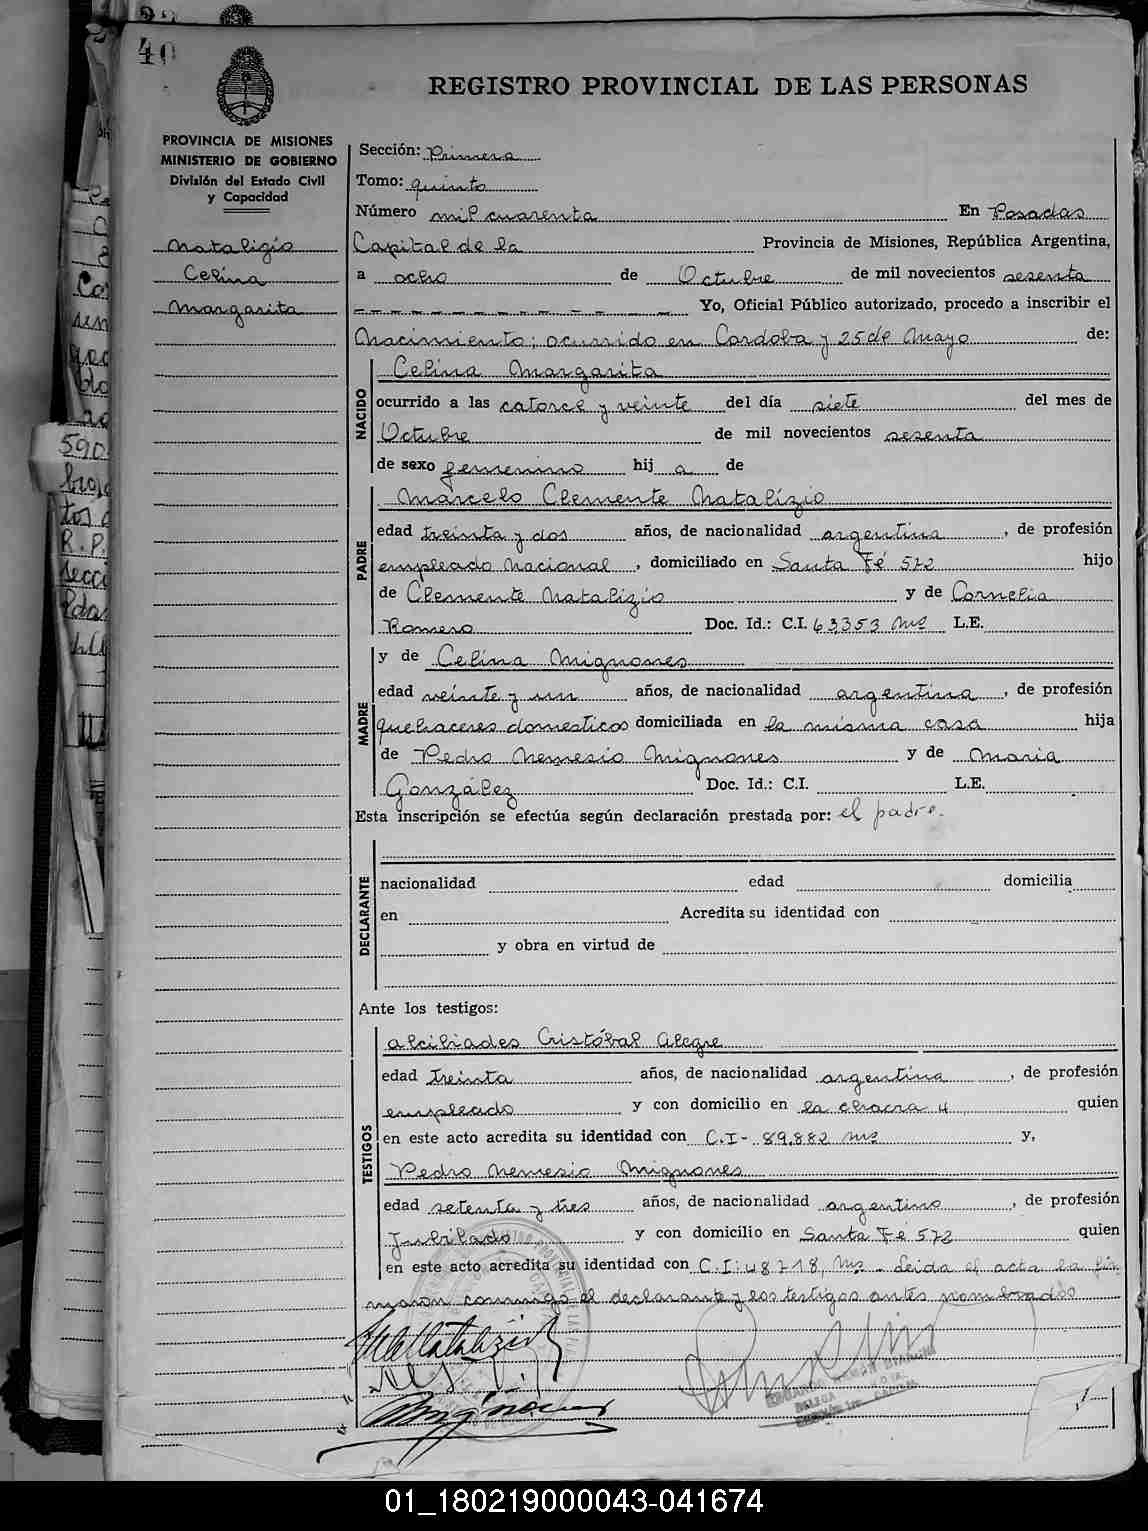 40
REGISTRO PROVINCIAL DE LAS PERSONAS
PROVINCIA DE MISIONES
MINISTERIO DE GOBIERNO
División del Estado Civil
y Capacidad
Natalizio
Celina
Margarita
Sección: Primera
Tomo: quinto
Número mil cuarenta En Posadas
Capital de la Provincia de Misiones, República Argentina,
a ocho de Octubre de mil novecientos sesenta
Yo, Oficial Público autorizado, procedo a inscribir el
Nacimiento; ocurrido en Cordoba y 25 de Mayo de:
NACIDO
Celina Margarita
ocurrido a las catorce y veinte del día siete del mes de
Octubre de mil novecientos sesenta
de sexo femenino hij a de
PADRE
Marcelo Clemente Natalízio
edad treinta y dos años, de nacionalidad argentina, de profesión
empleado Nacional, domiciliado en Santa Fé 572 hijo
de Clemente Natalizio y de Cornelia
Romero Doc. Id.: C.I. 63353 Mns L.E.
MADRE
y de Celina Mignones
edad veinte y un años, de nacionalidad argentina, de profesión
quehaceres domesticos domiciliada en la misma casa hija
de Pedro Nemesio Mignones y de Maria
González Doc. Id.: C.I. L.E.
Esta inscripción se efectúa según declaración prestada por: el padre.
DECLARANTE
nacionalidad edad domicilia
en Acredita su identidad con
y obra en virtud de
Ante los testigos:
TESTIGOS
Alcibiades Cristóbal Alegre
edad treinta años, de nacionalidad argentina, de profesión
empleado y con domicilio en la chacra 4 quien
en este acto acredita su identidad con C.I- 89.882 Mns y,
Pedro Nemesio Mignones
edad setenta y tres años, de nacionalidad argentino, de profesión
Jubilado y con domicilio en Santa Fé 572 quien
en este acto acredita su identidad con C.I: 48718, Mns - Leida el acta la fir
maron conmigo el declarante y los testigos antes nombrados
01_180219000043-041674